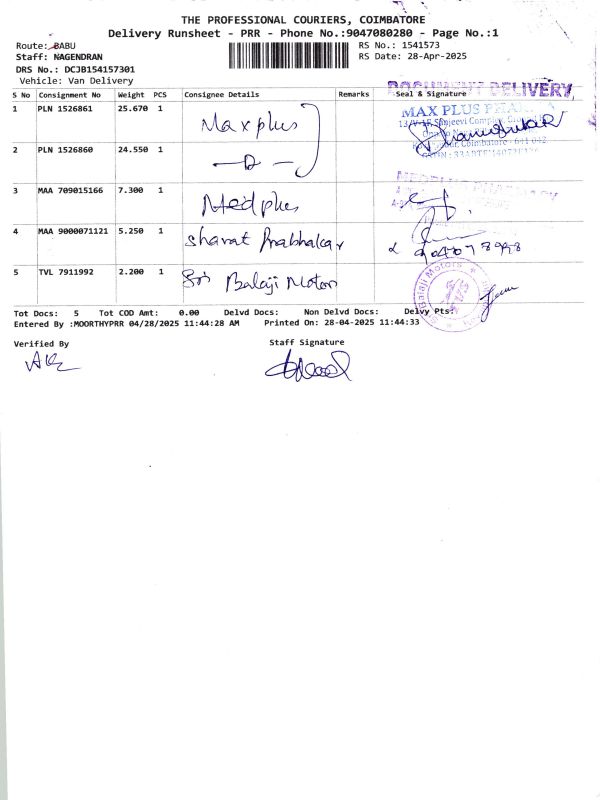 THE PROFESSIONAL COURIERS, COIMBATORE
Delivery Runsheet - PRR - Phone No.:9047080280 - Page No.:1
Route: BABU
RS No.: 1541573
Staff: NAGENDRAN
RS Date: 28-Apr-2025
DRS No.: DCJB154157301
Vehicle: Van Delivery
DOCUMENT DELIVERY
S No Consignment No Weight PCS Consignee Details Remarks Seal & Signature
1 PLN 1526861 25.670 1 Maxplus
MAX PLUS
Sanjeevi Complex,
2 PLN 1526860 24.550 1 - D -
Coimbatore - 641 042
3 MAA 709015166 7.300 1 Medplus
4 MAA 9000071121 5.250 1 Sharat Prabhakar
5 TVL 7911992 2.200 1 Sri Balaji Motors
Balaji Motors
Tot Docs: 5 Tot COD Amt: 0.00 Delvd Docs: Non Delvd Docs: Delvy Pts:
Entered By :MOORTHYPRR 04/28/2025 11:44:28 AM Printed On: 28-04-2025 11:44:33
Verified By Staff Signature